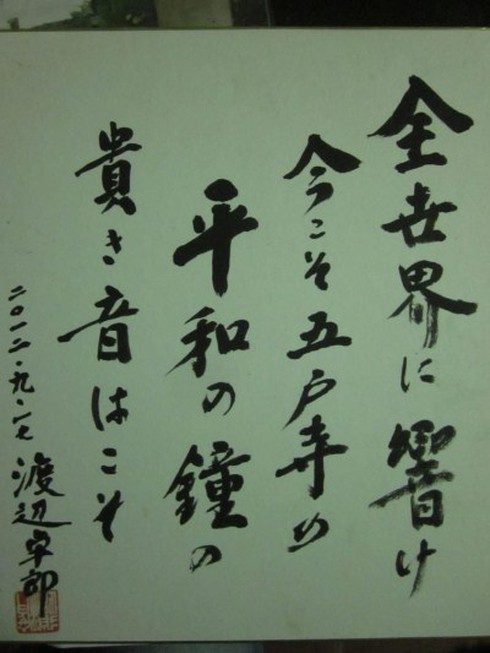 全世界に響け
今こそ五戸寺の
平和の鐘の
貴き音はこそ
二〇一二・九・一七 渡辺卓郎